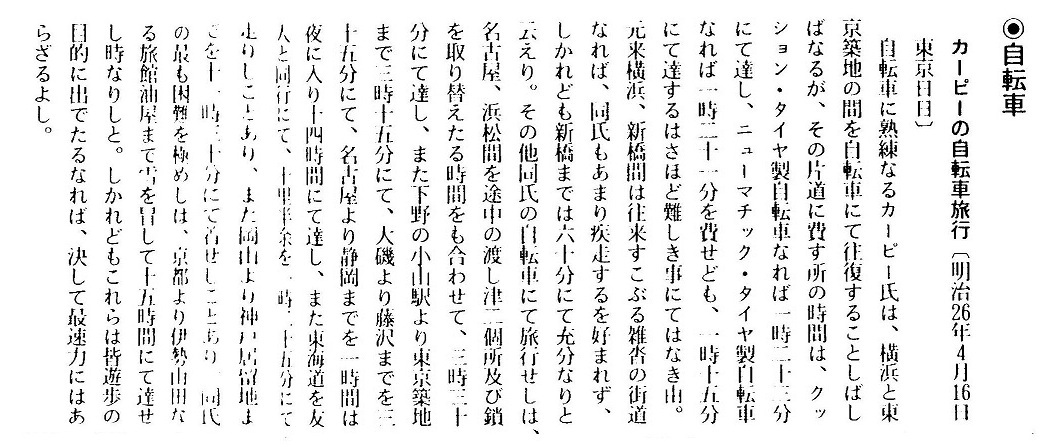 ◉自転車
カーピーの自転車旅行〔明治26年4月16日
東京日日〕
自転車に熟練なるカーピー氏は、横浜と東
京築地の間を自転車にて往復することしばし
ばなるが、その片道に費す所の時間は、クッ
ション・タイヤ製自転車なれば一時二十三分
にて達し、ニューマチック・タイヤ製自転車
なれば一時二十一分を費せども、一時十五分
にて達するはさほど難しき事にてはなき由。
元来横浜、新橋間は往来すこぶる雑沓の街道
なれば、同氏もあまり疾走するを好まれず、
しかれども新橋までは六十分にて充分なりと
云えり。その他同氏の自転車にて旅行せしは、
名古屋、浜松間を途中の渡し津二個所及び鎖
を取り替えたる時間をも合わせて、三時三十
分にて達し、また下野の小山駅より東京築地
まで三時十五分にて、大磯より藤沢までを三
十五分にて、名古屋より静岡までを一時間は
夜に入り十四時間にて達し、また東海道を友
人と同行にて、十里半余を一時二十五分にて
走りしことあり、また岡山より神戸居留地ま
でを十一時三十分にて着せしことあり、同氏
の最も困難を極めしは、京都より伊勢山田な
る旅館油屋まで雪を冒して十五時間にて達せ
し時なりしと。しかれどもこれらは皆遊歩の
目的に出でたるなれば、決して最速力にはあ
らざるよし。